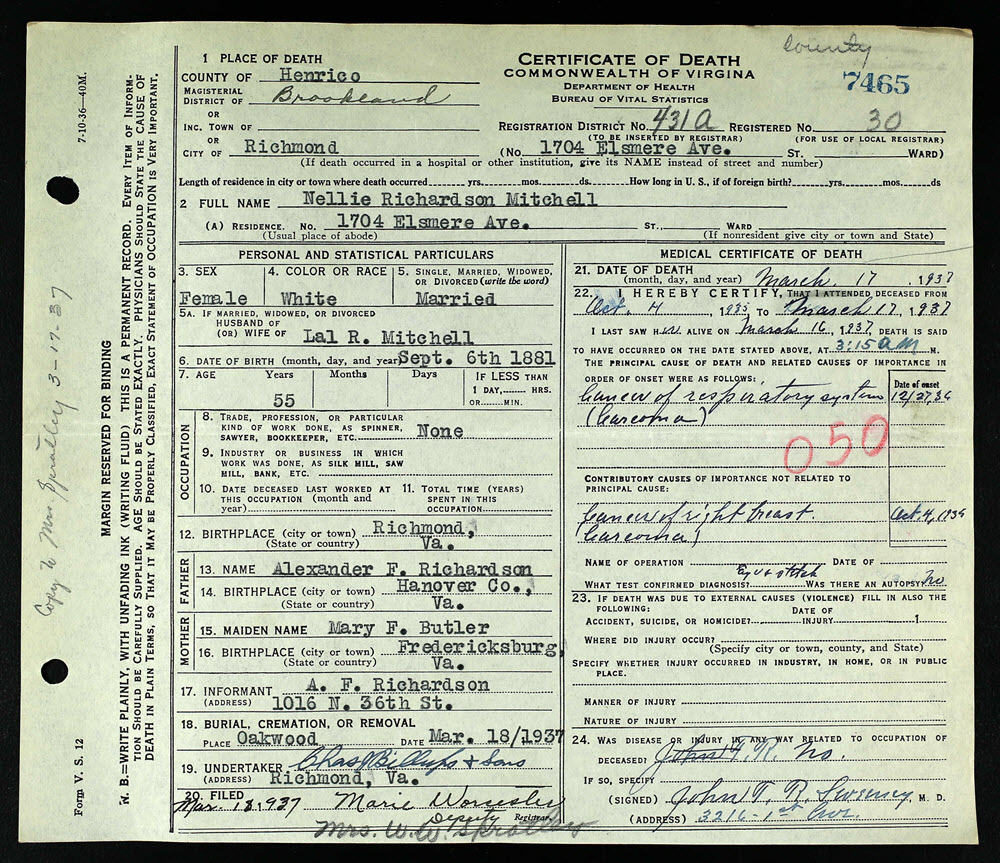 County
1 PLACE OF DEATH
COUNTY OF Henrico
MAGISTERIAL DISTRICT OF Brookland
OR
INC. TOWN OF
OR
CITY OF Richmond
CERTIFICATE OF DEATH
COMMONWEALTH OF VIRGINIA
DEPARTMENT OF HEALTH
BUREAU OF VITAL STATISTICS
7465
REGISTRATION DISTRICT NO. 431A REGISTERED NO. 30
(TO BE INSERTED BY REGISTRAR) (FOR USE OF LOCAL REGISTRAR)
(No. 1704 Elsmere Ave. ST. WARD)
(If death occurred in a hospital or other institution, give its NAME instead of street and number)
Length of residence in city or town where death occurred yrs. mos. ds. How long in U. S., if of foreign birth? yrs. mos. ds
2 FULL NAME Nellie Richardson Mitchell
(A) RESIDENCE. No. 1704 Elsmere Ave. ST., WARD
(Usual place of abode) (If nonresident give city or town and State)
PERSONAL AND STATISTICAL PARTICULARS
3. SEX 4. COLOR OR RACE 5. SINGLE, MARRIED, WIDOWED, OR DIVORCED (write the word)
Female White Married
5A. IF MARRIED, WIDOWED, OR DIVORCED
HUSBAND OF
(OR) WIFE OF Lal R. Mitchell
6. DATE OF BIRTH (month, day, and year) Sept. 6th 1881
7. AGE Years Months Days IF LESS THAN
1 DAY, HRS.
55 OR MIN.
OCCUPATION
8. TRADE, PROFESSION, OR PARTICULAR
KIND OF WORK DONE, AS SPINNER,
SAWYER, BOOKKEEPER, ETC. None
9. INDUSTRY OR BUSINESS IN WHICH
WORK WAS DONE, AS SILK MILL, SAW
MILL, BANK, ETC.
10. DATE DECEASED LAST WORKED AT THIS OCCUPATION (month and year)
11. TOTAL TIME (YEARS) SPENT IN THIS OCCUPATION
12. BIRTHPLACE (city or town) Richmond,
(State or country) Va.
FATHER
13. NAME Alexander F. Richardson
14. BIRTHPLACE (city or town) Hanover Co.,
(State or country) Va.
MOTHER
15. MAIDEN NAME Mary F. Butler
16. BIRTHPLACE (city or town) Fredericksburg,
(State or country) Va.
17. INFORMANT A. F. Richardson
(ADDRESS) 1016 N. 36th St.
18. BURIAL, CREMATION, OR REMOVAL
PLACE Oakwood DATE Mar. 18/1937
19. UNDERTAKER Chas P Billups & Sons
(ADDRESS) Richmond, Va.
20. FILED
Mar. 18, 1937 Marie Worcester
Deputy Registrar.
Mrs. W. W. Spratley
MEDICAL CERTIFICATE OF DEATH
21. DATE OF DEATH
(month, day, and year) March 17, 1937
22. I HEREBY CERTIFY, THAT I ATTENDED DECEASED FROM
Oct. 4, 1935 TO March 17, 1937
I LAST SAW H er ALIVE ON March 16, 1937, DEATH IS SAID
TO HAVE OCCURRED ON THE DATE STATED ABOVE, AT 3:15 AM M.
THE PRINCIPAL CAUSE OF DEATH AND RELATED CAUSES OF IMPORTANCE IN
ORDER OF ONSET WERE AS FOLLOWS: Date of onset
Cancer of respiratory system 12/27,36
(Carcoma)
050
CONTRIBUTORY CAUSES OF IMPORTANCE NOT RELATED TO
PRINCIPAL CAUSE:
Cancer of right breast Oct. 4, 1935
(Carcoma)
NAME OF OPERATION DATE OF
WHAT TEST CONFIRMED DIAGNOSIS? WAS THERE AN AUTOPSY? No
23. IF DEATH WAS DUE TO EXTERNAL CAUSES (VIOLENCE) FILL IN ALSO THE
FOLLOWING: DATE OF
ACCIDENT, SUICIDE, OR HOMICIDE? INJURY 1
WHERE DID INJURY OCCUR?
(Specify city or town, county, and State)
SPECIFY WHETHER INJURY OCCURRED IN INDUSTRY, IN HOME, OR IN PUBLIC
PLACE.
MANNER OF INJURY
NATURE OF INJURY
24. WAS DISEASE OR INJURY IN ANY WAY RELATED TO OCCUPATION OF
DECEASED? John T. R. No.
IF SO, SPECIFY
(SIGNED) John T. R. Sweeney M. D.
(ADDRESS) 3216-1st Ave.
7-10-36—40M.
MARGIN RESERVED FOR BINDING
N. B.—WRITE PLAINLY, WITH UNFADING INK (WRITING FLUID) THIS IS A PERMANENT RECORD. EVERY ITEM OF INFORMA-
TION SHOULD BE CAREFULLY SUPPLIED. AGE SHOULD BE STATED EXACTLY. PHYSICIANS SHOULD STATE THE CAUSE OF
DEATH IN PLAIN TERMS, SO THAT IT MAY BE PROPERLY CLASSIFIED. EXACT STATEMENT OF OCCUPATION IS VERY IMPORTANT.
Form V. S. 12
Copy to Mrs Spratley 3-17-37